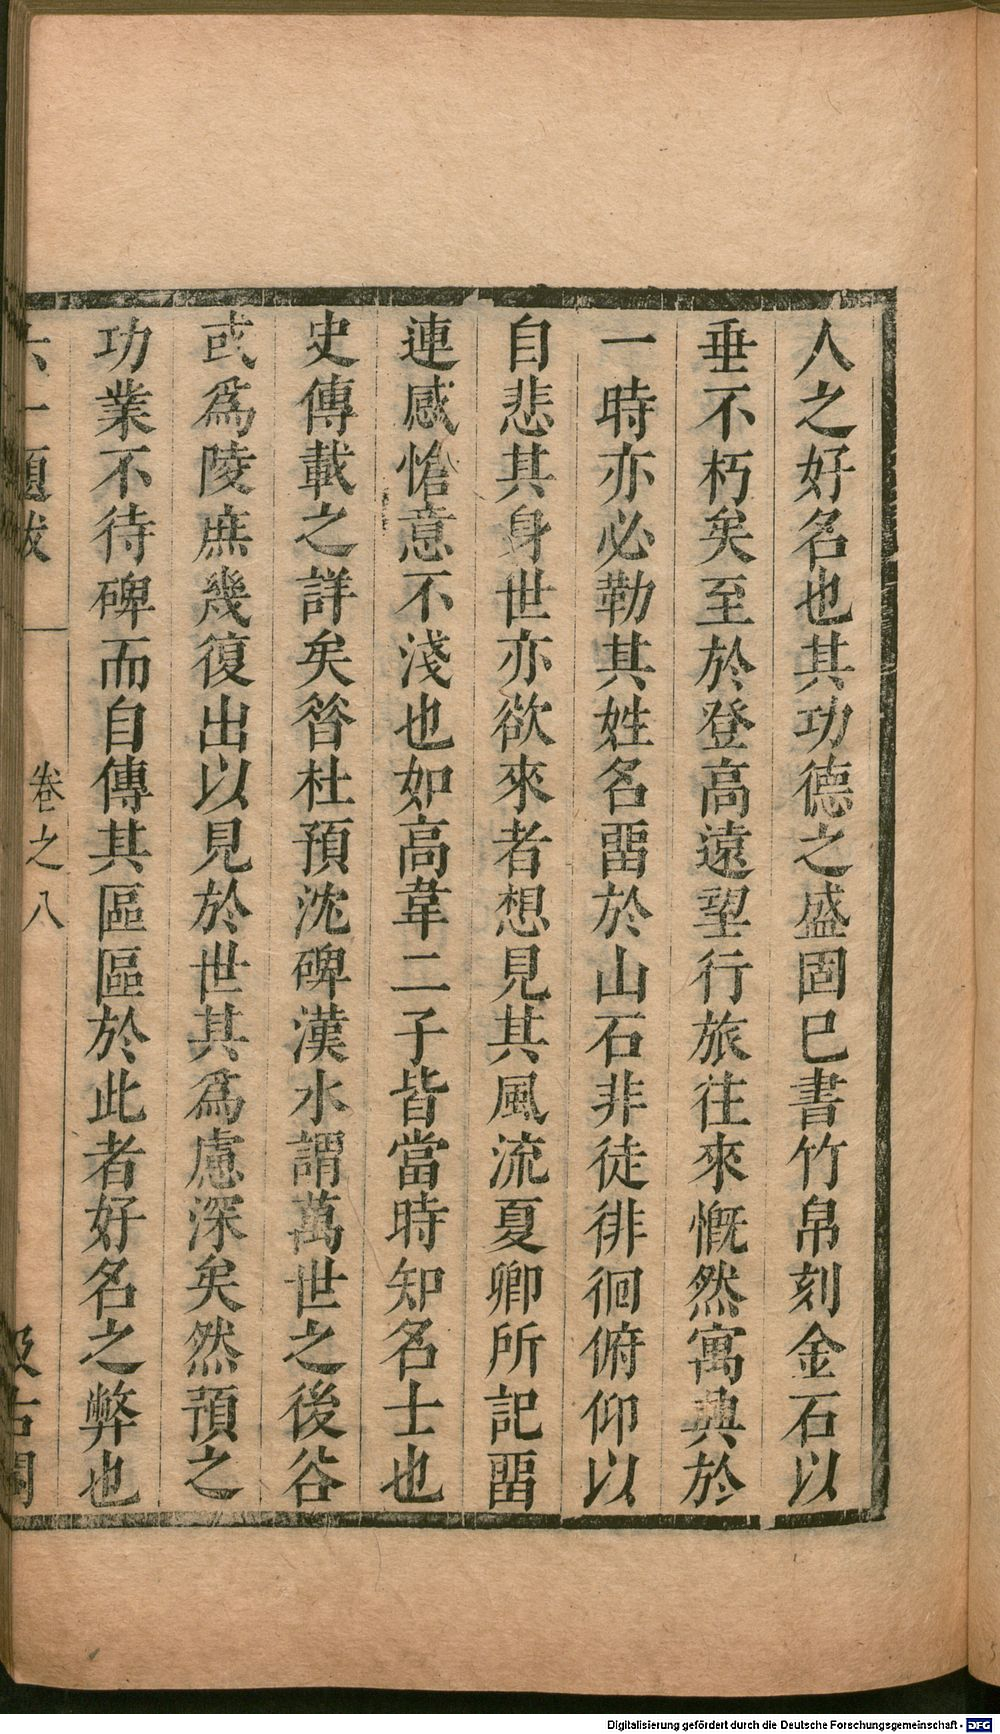 人之好名也其功德之盛固巳書竹帛刻金石以
垂不朽矣至於登高遠望行旅往來慨然寓興於
一時亦必勒其姓名畱於山石非徒徘徊俯仰以
自悲其身世亦欲來者想見其風流夏卿所記畱
連感愴意不淺也如高韋二子皆當時知名士也
史傳載之詳矣昝杜預沈碑漢水謂萬世之後谷
或爲陵庶幾復出以見於世其爲慮深矣然預之
功業不待碑而自傳其區區於此者好名之弊也
六一題跋 卷之八 汲古閣
Digitalisierung gefördert durch die Deutsche Forschungsgemeinschaft - DFG